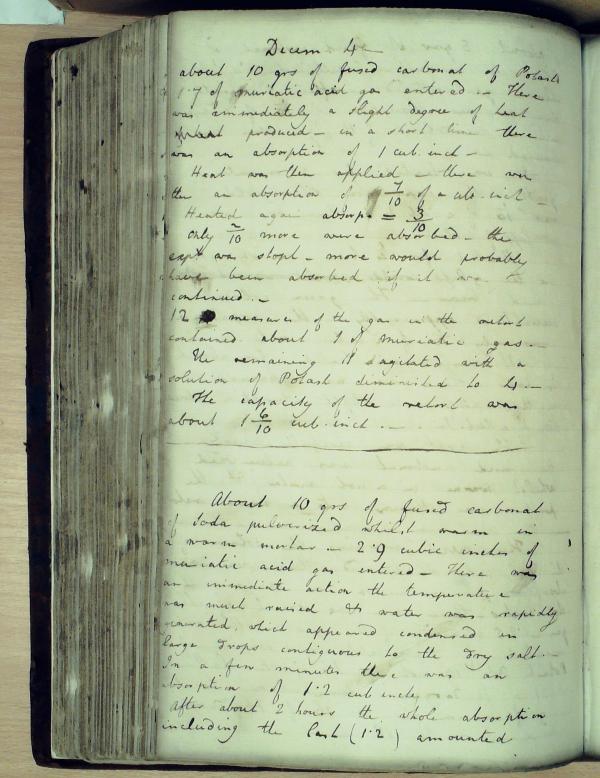 Decem 4
about 10 grs of fused carbonat of Potash
1.7 of muriatic acid gas entered - There
was immediately a slight degree of heat
produced - in a short time there
was an absorption of 1 cub. inch -
Heat was then applied - there was
then an absorption of 7/10 of a cub. inch -
Heated again absorp. = 3/10
only 2/10 more were absorbed - the
expt was stopt - more would probably
have been absorbed if it was
continued. -
12 measures of the gas in the retort
contained about 1 of muriatic gas. -
The remaining 11 agitated with a
solution of Potash diminished to 4. -
The capacity of the retort was
about 1 6/10 cub. inch. -
About 10 grs of fused carbonat
of Soda pulverized whilst warm in
a warm mortar - 2.9 cubic inches of
muriatic acid gas entered - There was
an immediate action the temperature
was much raised & water was rapidly
generated which appeared condensed in
large drops contiguous to the dry salt.
In a few minutes there was an
absorption of 1.2 cub inches
After about 2 hours the whole absorption
including the last (1.2) amounted